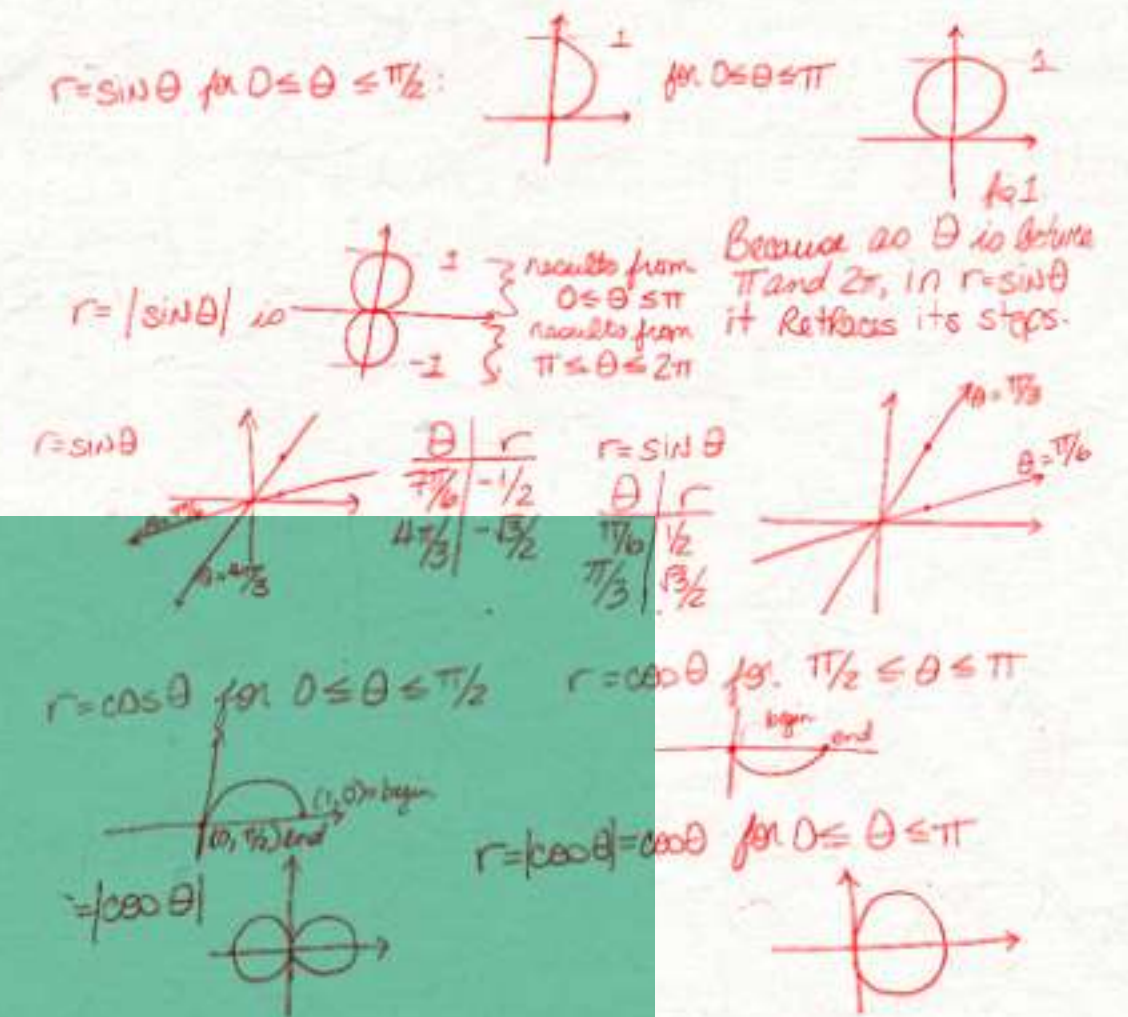 r=sinθ for 0≤θ≤π/2:
1
for 0≤θ≤π
1
fig 1
r=|sinθ| is
1
-1
results from
0≤θ≤π
results from
π≤θ≤2π
Because as θ is
π and 2π, in r=sinθ
it Retraces its steps.
r=sinθ
θ=4π/3
θ r
7π/6 -1/2
4π/3 -√3/2
r=sinθ
θ r
π/6 1/2
π/3 √3/2
θ=π/3
θ=π/6
r=cosθ for 0≤θ≤π/2
(1,0)=begin
(0, π/2) end
r=cosθ for. π/2≤θ≤π
begin
end
=|cosθ|
r=|cosθ|=cosθ for 0≤θ≤π